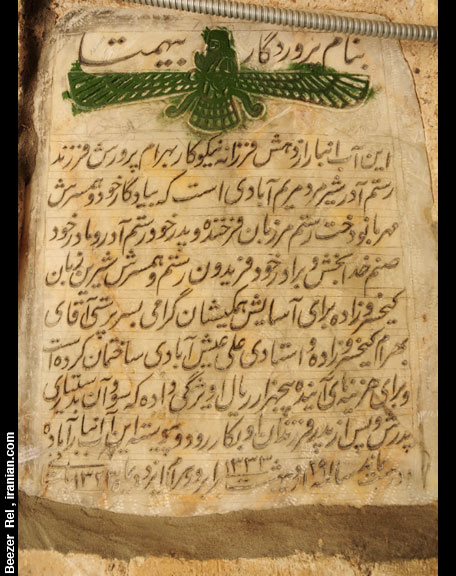 بنام پروردگار بیهمتا
این آب انبار از دهش فرزانه نیکوکار بهرام پرورش فرزند
رستم آدر شیر مریم آبادی است که بیادگار خود و همسرش
مهربانو دخت رستم مرزبان فرخنده و پدر خود رستم آدر و مادر خود
صنم خدابخش و برادر خود فریدون رستم و همسرش شیرین نهبان
کیخسرو زاده برای آسایش همکیشان گرامی بسرپرستی آقای
بهرام کیخسرو زاده و استادی علی عیش آبادی ساختمان کرده است
و برای هزینه‌ای آینده پنجهزار ریال ویژگی داده که سود آن بدستیاری
پدرش و پس از پدر فرزندان او بکار رود و پیوسته این آب انبار آباد
۱۳۳۳
Beezer Rel, iranian.com